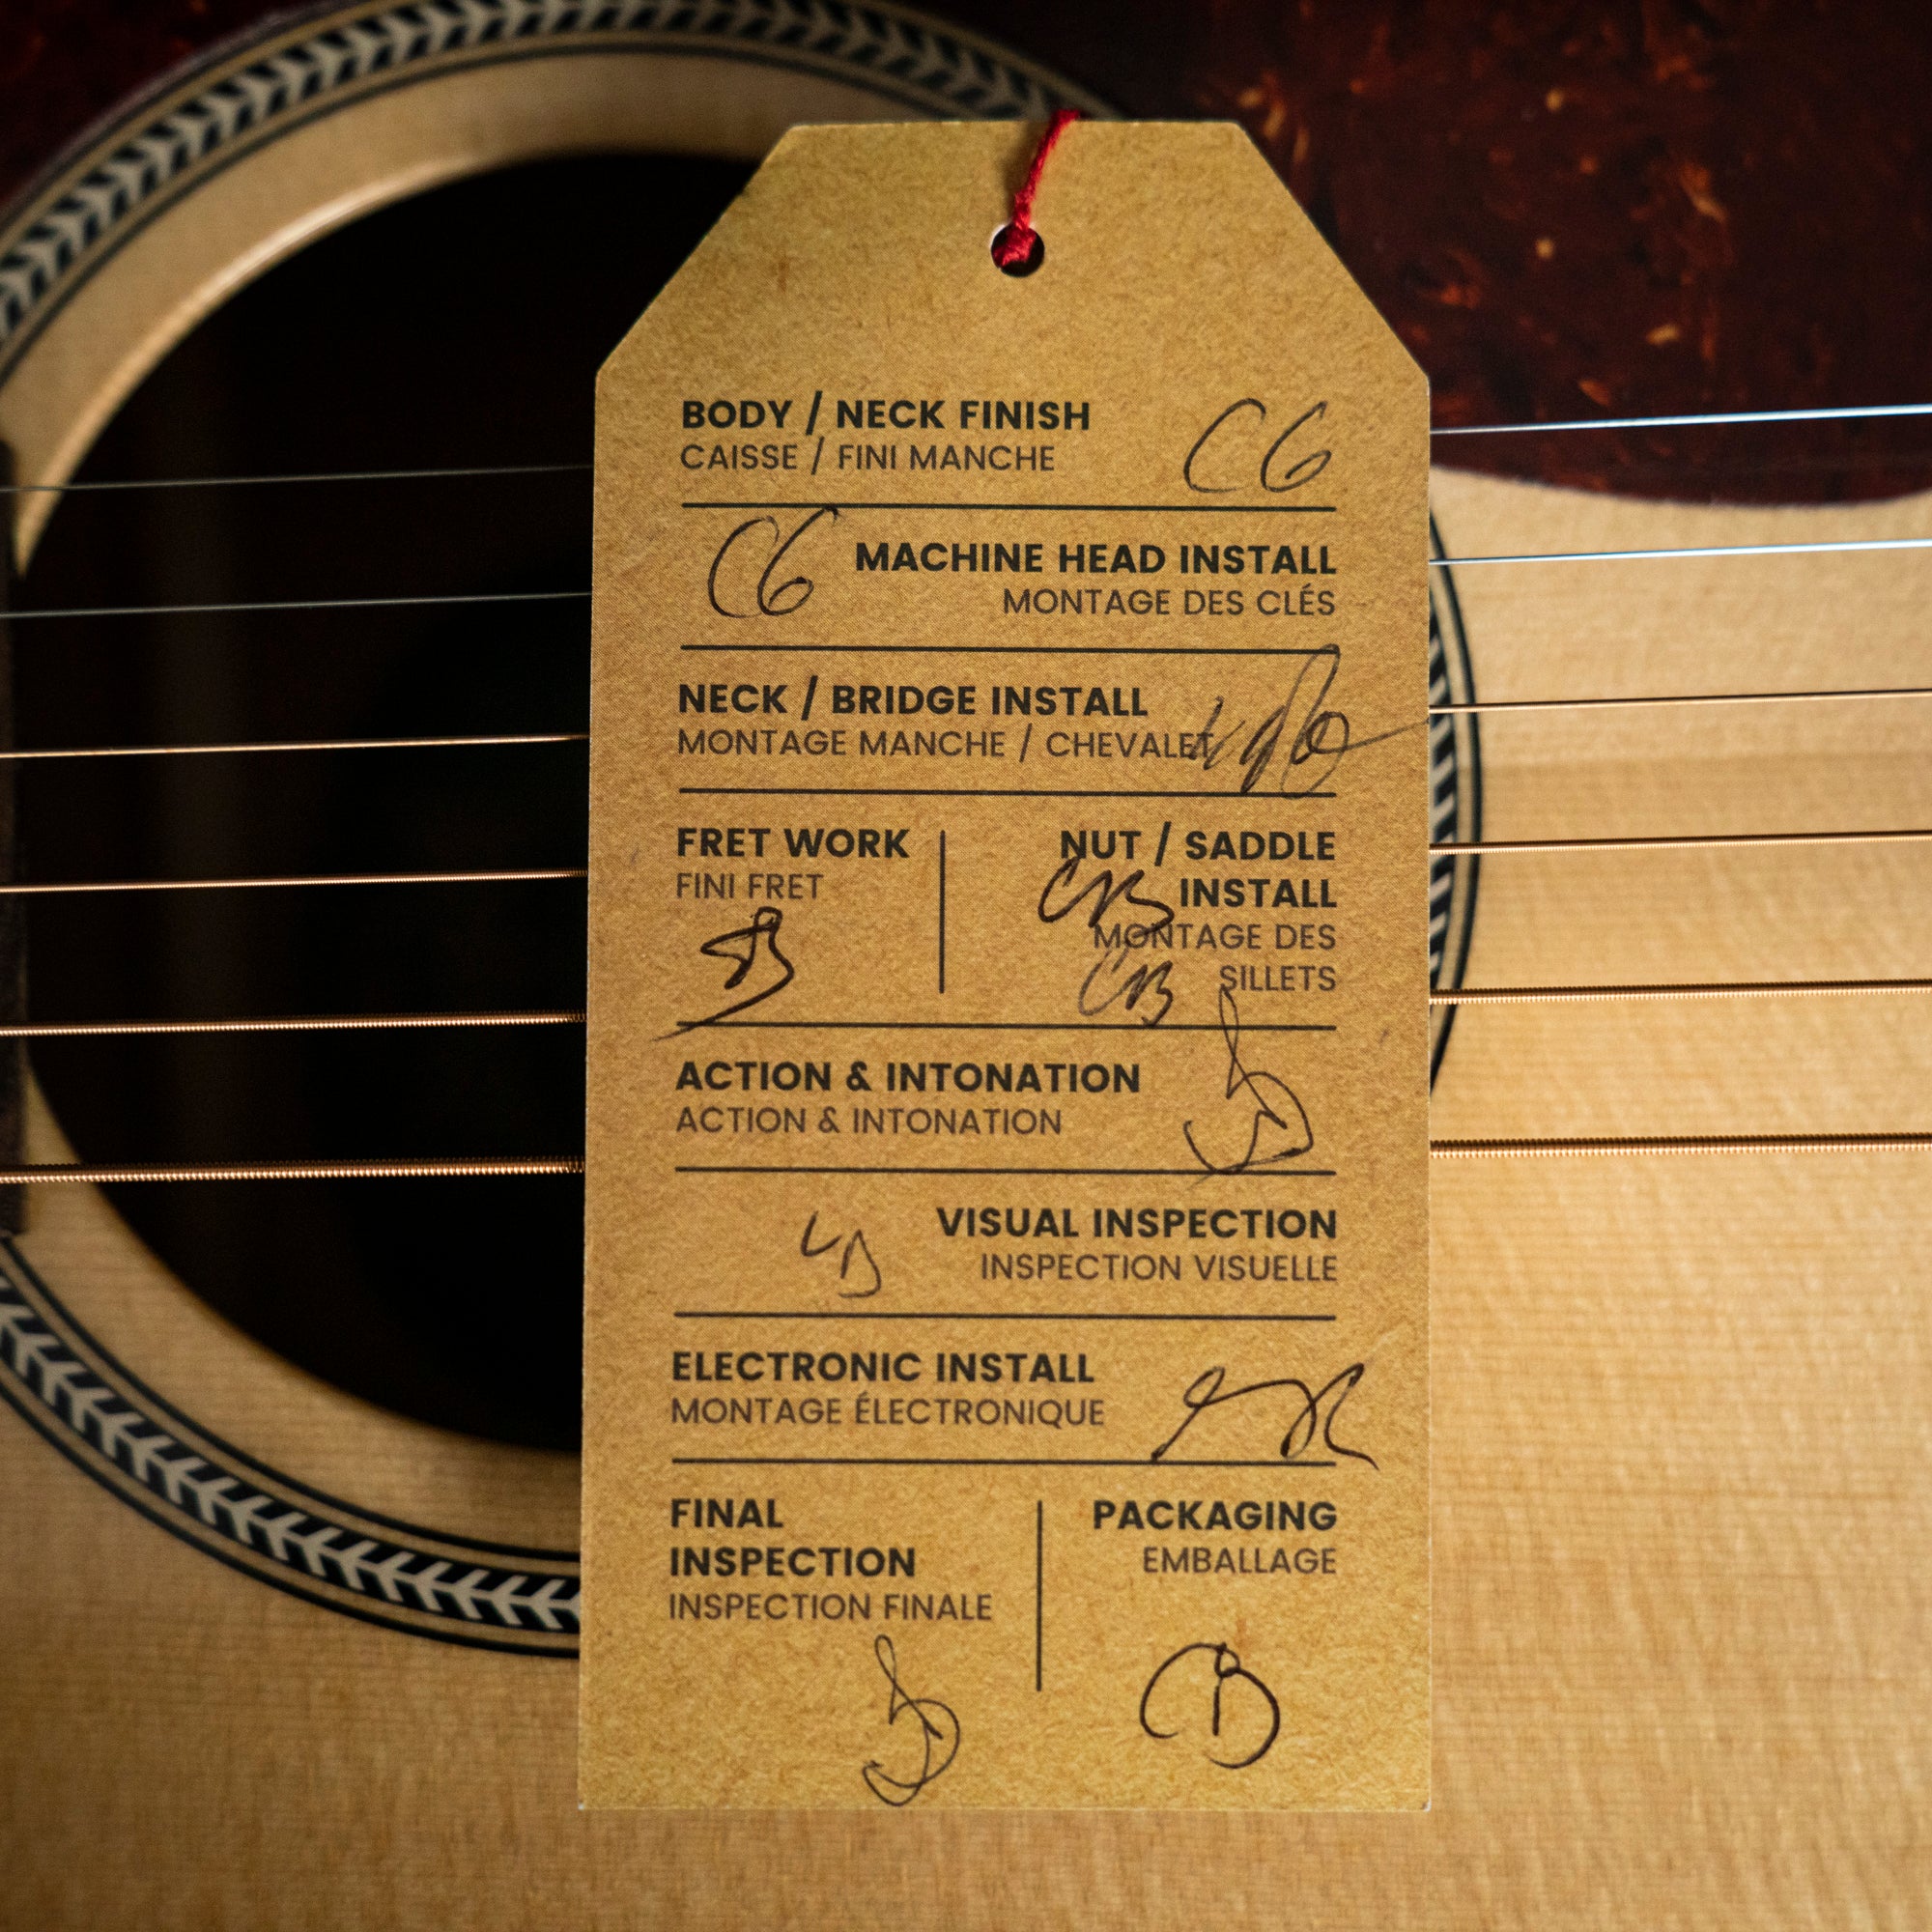 BODY / NECK FINISH
CAISSE / FINI MANCHE
CG
CG
MACHINE HEAD INSTALL
MONTAGE DES CLÉS
NECK / BRIDGE INSTALL
MONTAGE MANCHE / CHEVALET
FRET WORK
FINI FRET
NUT / SADDLE
INSTALL
MONTAGE DES
SILLETS
CB
CB
ACTION & INTONATION
ACTION & INTONATION
VISUAL INSPECTION
INSPECTION VISUELLE
ELECTRONIC INSTALL
MONTAGE ÉLECTRONIQUE
FINAL
INSPECTION
INSPECTION FINALE
PACKAGING
EMBALLAGE